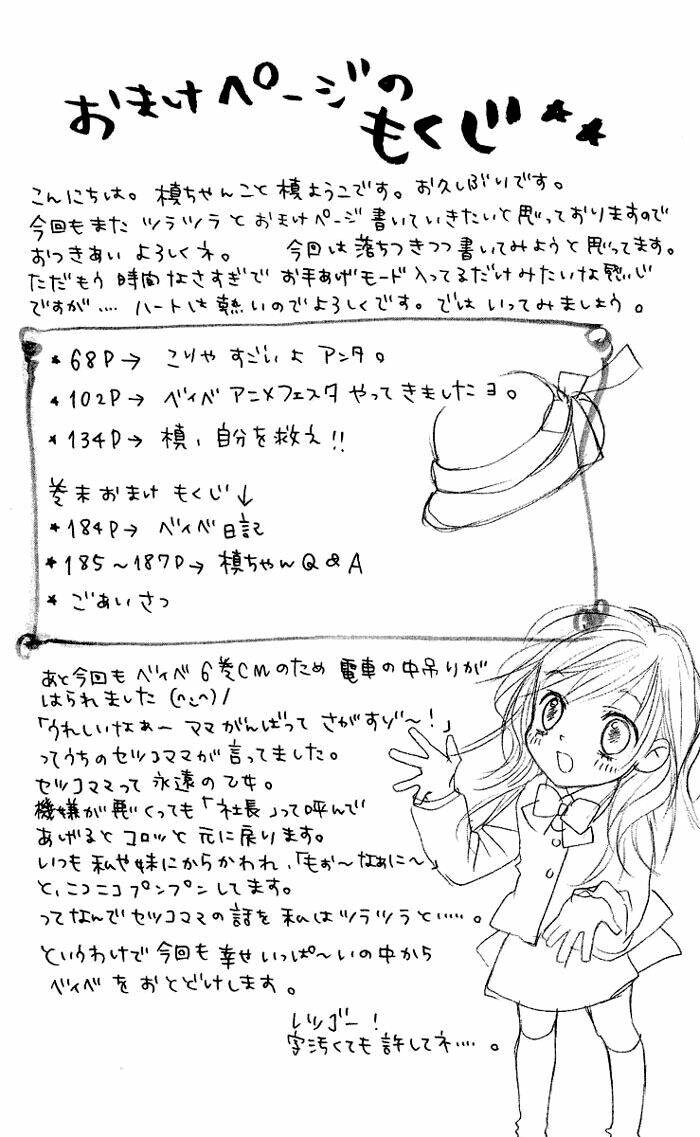 おまけページの
もくじ★★
こんにちは。槙ちゃんこと槙ようこです。お久しぶりです。
今回もまたツラツラとおまけページ書いていきたいと思っておりますので
おつきあいよろしくネ。 今回は落ちつきつつ書いてみようと思ってます。
ただもう時間なさすぎでお手あげモード入ってるだけみたいな感じ
ですが…ハートは熱いのでよろしくです。ではいってみましょう。
★68P→ こりゃすごいよアンタ。
★102P→ ベイベアニメフェスタやってきましたヨ。
★134P→ 槙、自分を救え!!
巻末おまけもくじ↓
★184P→ ベイベ日記
★185～187P→ 槙ちゃんQ&A
★ごあいさつ
あと今回もベイベ6巻CMのため電車の中吊りが
はられました(^◡^)/
「うれしいなぁーママがんばってさがすぞ～!」
ってうちのセツコママが言ってました。
セツコママって永遠の乙女。
機嫌が悪くっても「社長」って呼んで
あげるとコロッと元に戻ります。
いつも私や妹にからかわれ、「もぉ～なぁに～」
と、ニコニコプンプンしてます。
ってなんでセツコママの話を私はツラツラと……。
というわけで今回も幸せいっぱ～いの中から
ベイベをおとどけします。
レッゴー!
字汚くても許してネ…。